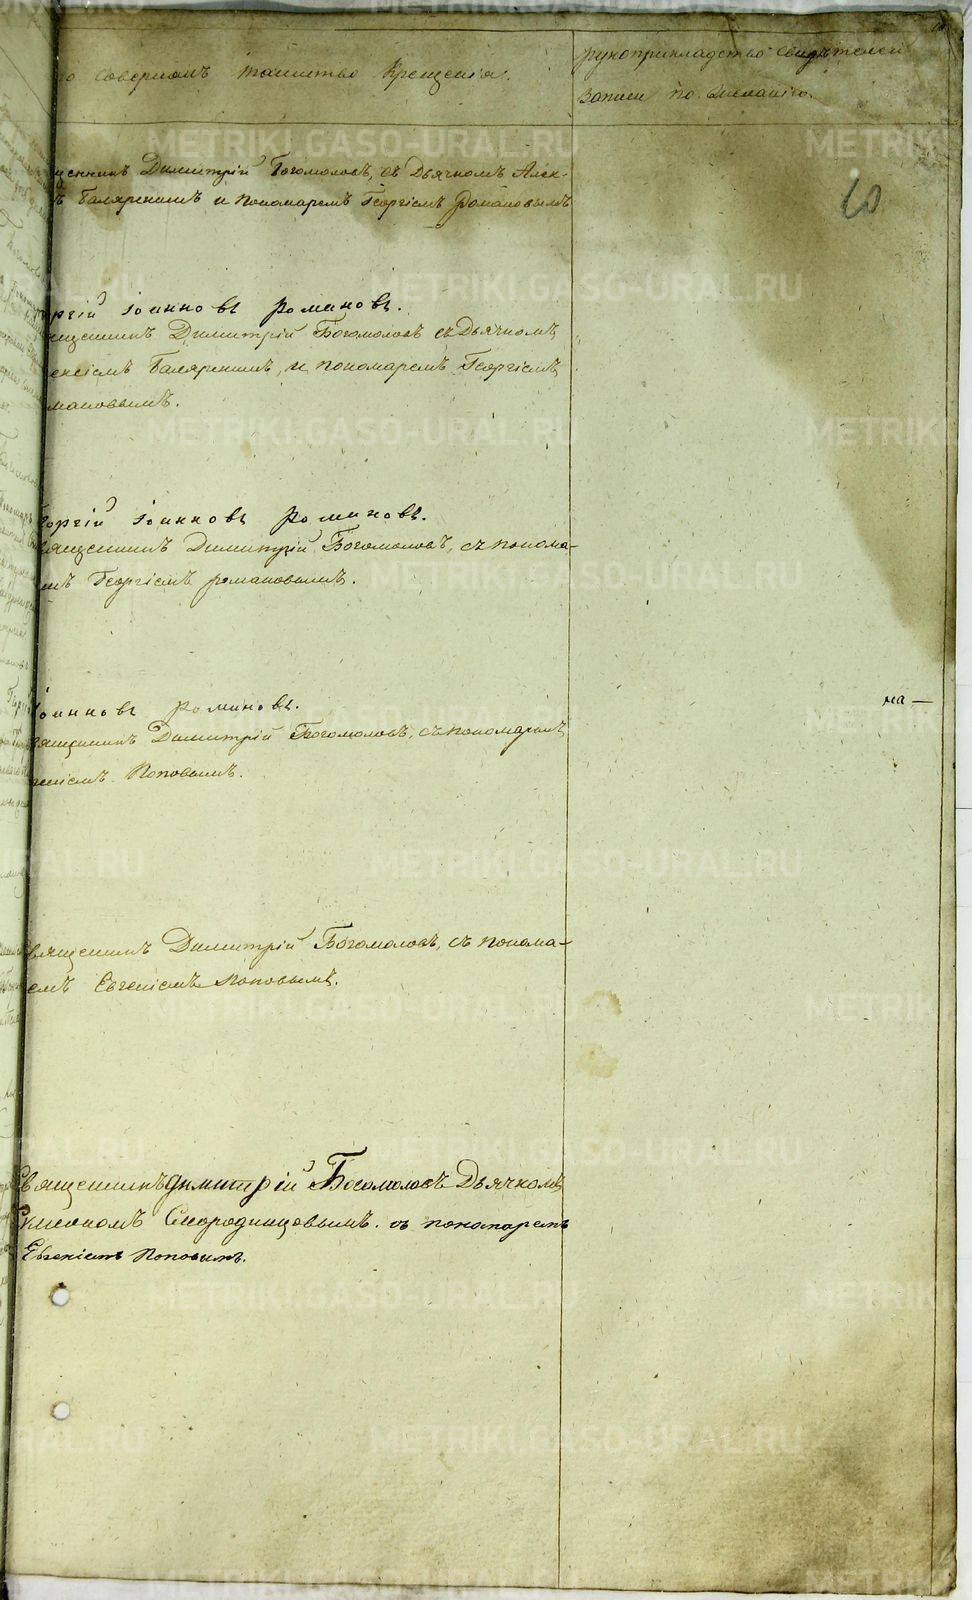 о совершалъ таинство крещенія.
рукоприкладство свидѣтелей
записи по желанію.
10
щенникъ Димитрій Богомоловъ, съ Дьячкомъ Алек-
и пономаремъ Георгіемъ Романовымъ
ргій Іоанновъ Романовъ.
щенникъ Димитрій Богомоловъ съ Дьячкомъ
ексіемъ и пономаремъ Георгіемъ
мановымъ.
еоргій Іоанновъ Романовъ.
вященникъ Димитрій Богомоловъ, съ понома-
мъ Георгіемъ Романовымъ.
Іоанновъ Романовъ.
на —
вященникъ Димитрій Богомоловъ, съ пономаремъ
геніемъ Поповымъ.
вященникъ Димитрій Богомоловъ, съ понома-
емъ Евгеніемъ Поповымъ.
Священникъ Димитрій Богомоловъ Дьячкомъ
Симеономъ Смородинцовымъ. съ пономаремъ
Евгеніемъ Поповымъ.
METRIKI.GASO-URAL.RU